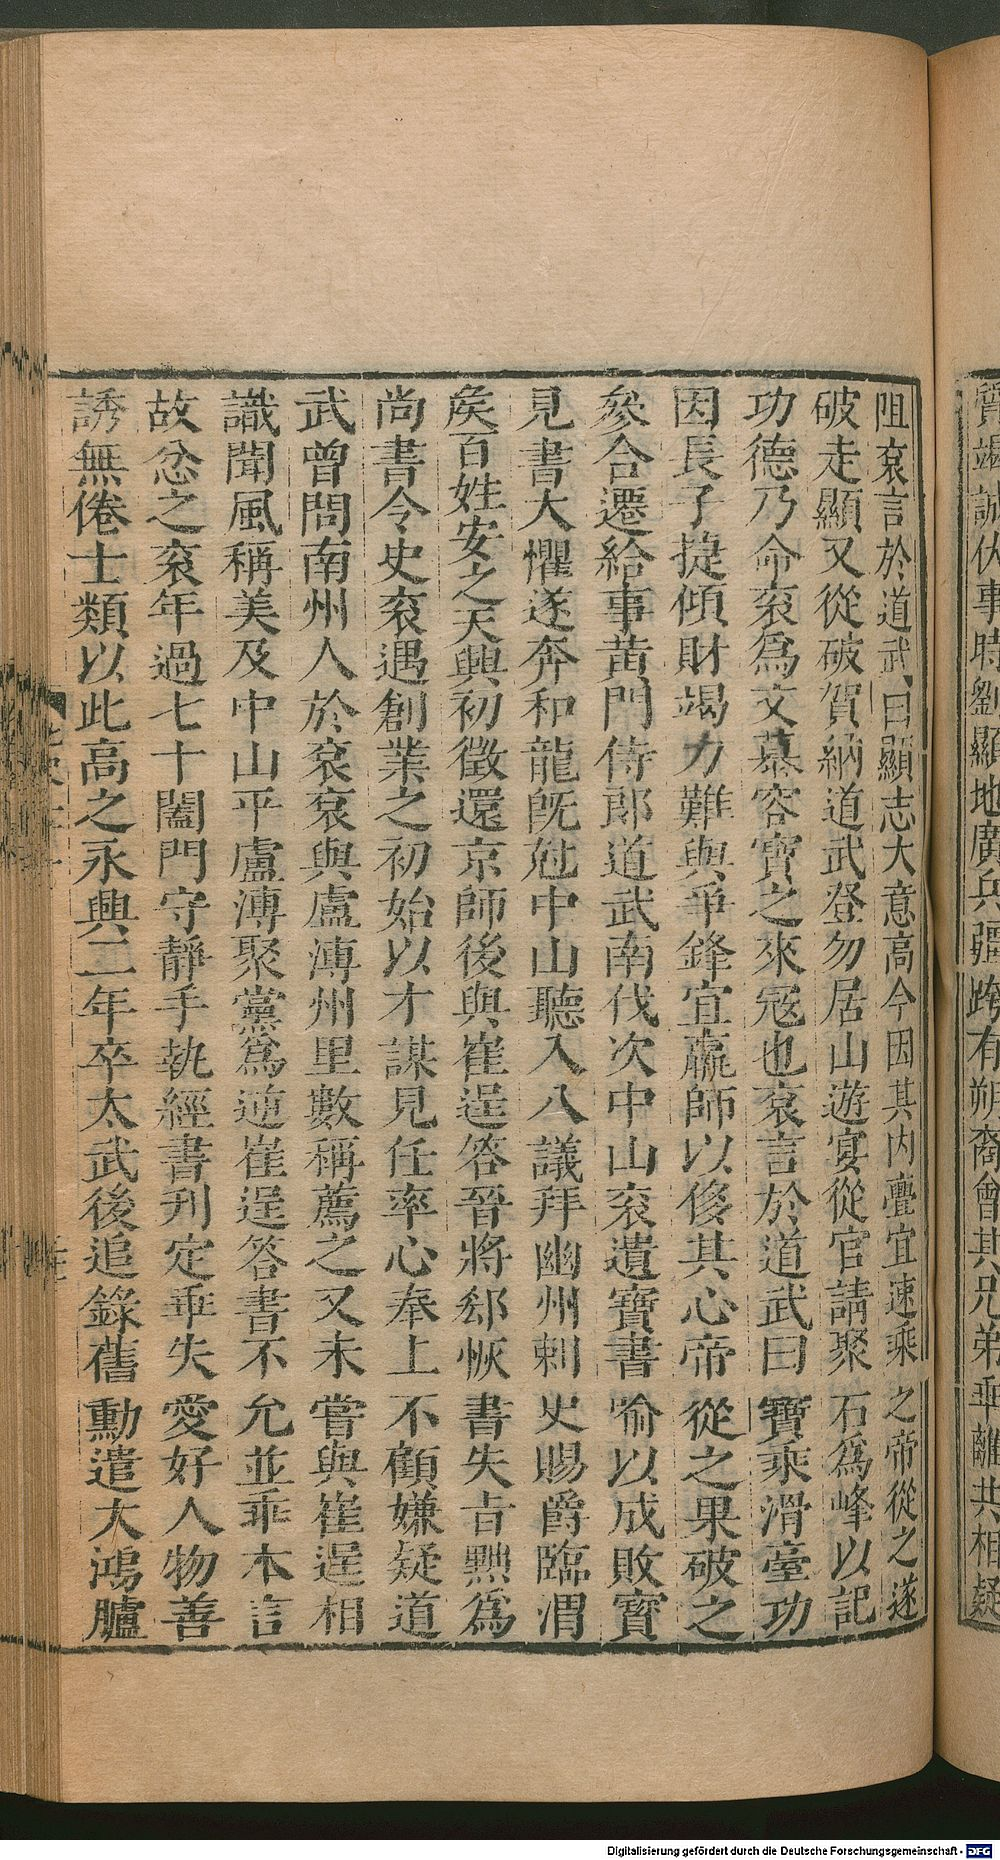 質竭誠伏事時劉顯地廣兵彊跨有朔裔會其兄弟乖離共相疑
阻袞言於道武曰顯志大意高今因其内釁宜速乘之帝從之遂
破走顯又從破賀納道武登勿居山遊宴從官請聚石爲峰以記
功德乃命袞爲文慕容寶之來冦也袞言於道武曰寶乘滑臺功
因長子捷傾財竭力難與爭鋒宜羸師以侈其心帝從之果破之
參合遷給事黄門侍郎道武南伐次中山袞遺寶書喻以成敗寶
見書大懼遂奔和龍旣尅中山聽入八議拜幽州刺史賜爵臨渭
矦百姓安之天興初徵還京師後與崔逞答晉將郄恢書失旨黜爲
尚書令史袞遇創業之初始以才謀見任率心奉上不顧嫌疑道
武曾問南州人於袞袞與盧溥州里數稱薦之又未嘗與崔逞相
識聞風稱美及中山平盧溥聚黨爲逆崔逞答書不允並乖本言
故忿之袞年過七十闔門守靜手執經書刋定乖失愛好人物善
誘無倦士類以此高之永興二年卒太武後追錄舊勳遣大鴻臚
Digitalisierung gefördert durch die Deutsche Forschungsgemeinschaft - DFG